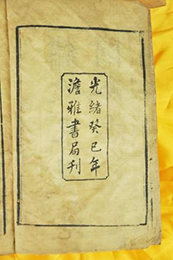 光緒癸巳年
澹雅書局刋